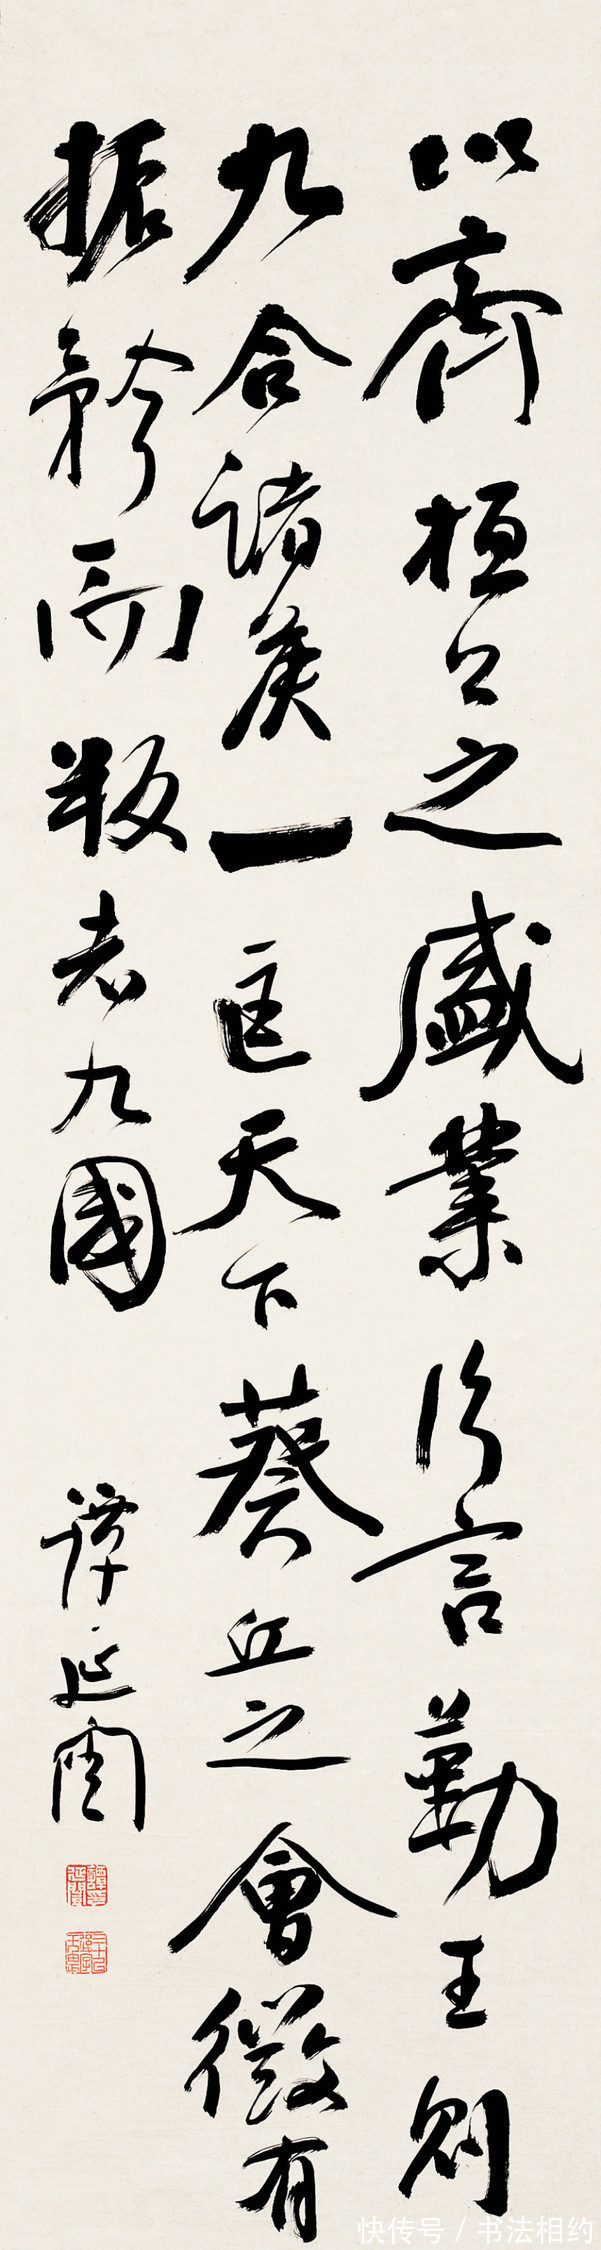 以齊桓公之盛業片言勤王則
九合諸侯一匡天下葵丘之會微有
振矜而叛者九國
譚延闓
快传号 / 书法相约